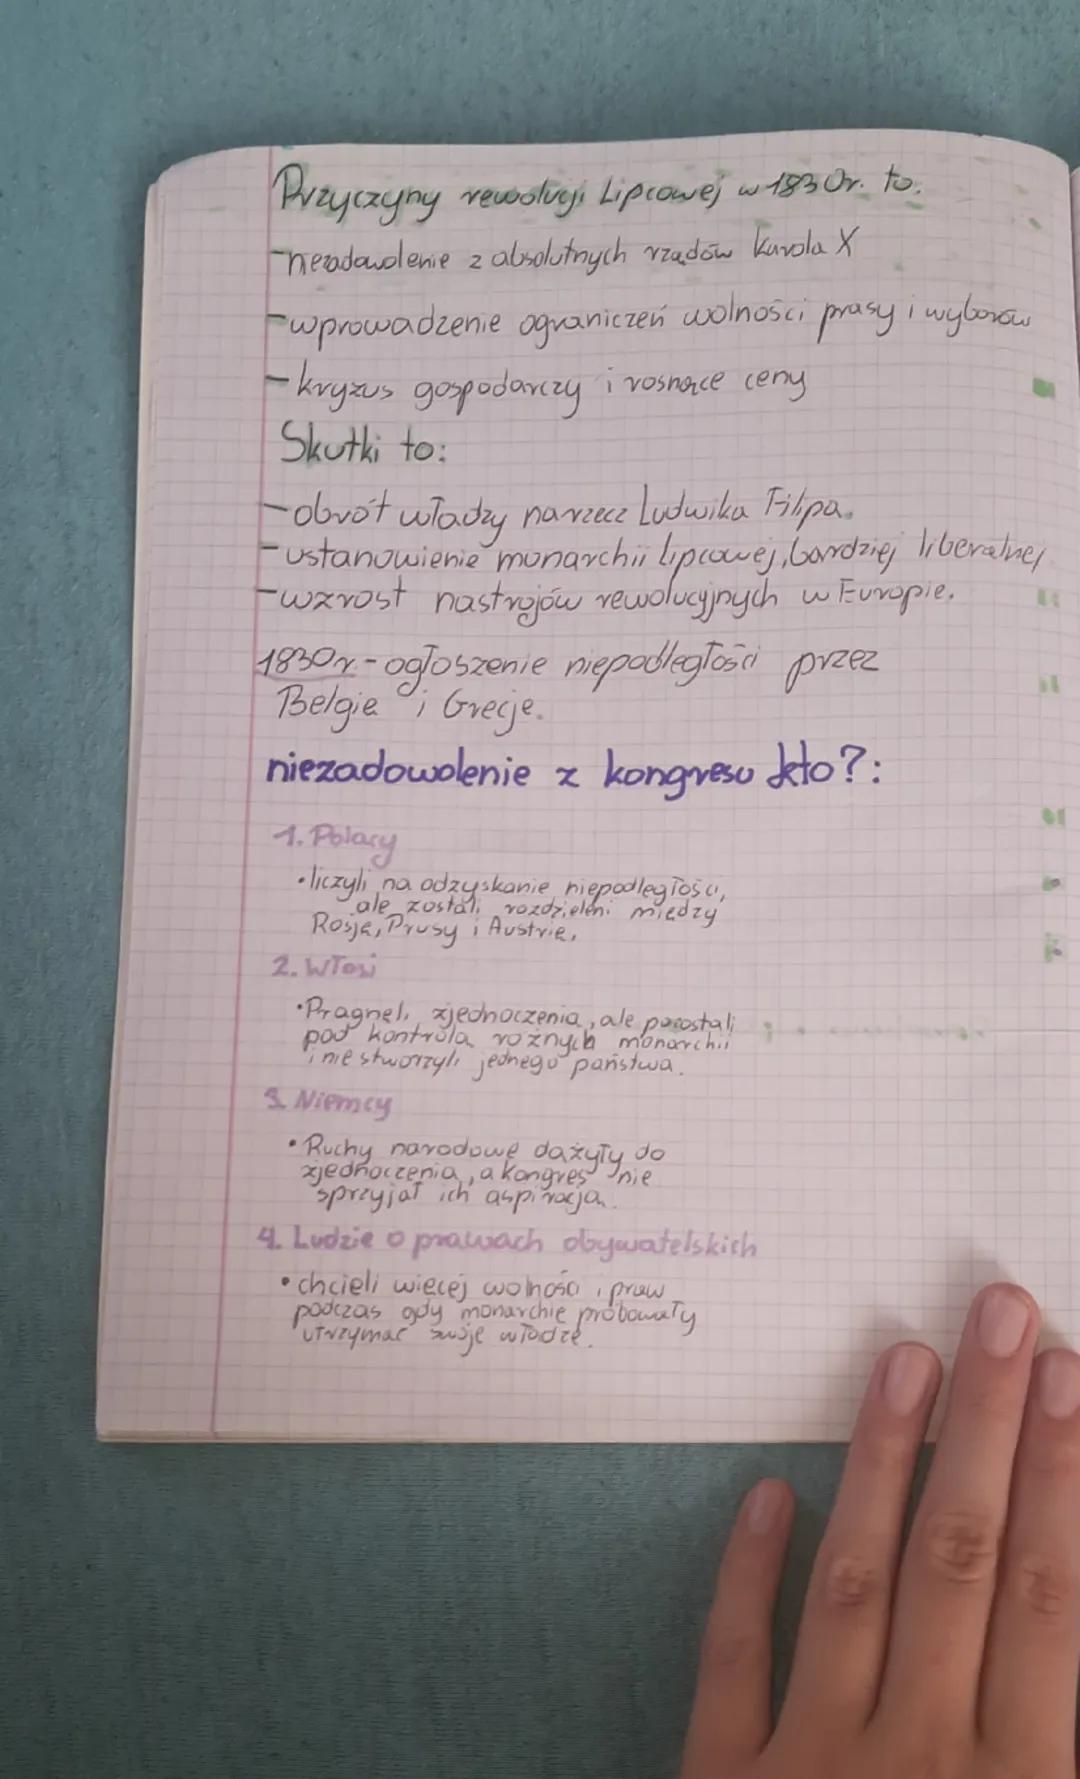 Przyczyny rewolucji Lipcowej w 1830r. to.
-niezadowolenie z absolutnych rządów Karola X
-wprowadzenie ograniczeń wolności prasy i wyborów
-kryzus gospodarczy i rosnące ceny
Skutki to:
-obrót władzy narzecz Ludwika Filipa.
-ustanowienie monarchii lipcowej, bardziej liberalnej
-wzrost nastrojów rewolucyjnych w Europie.
1830r.-ogłoszenie niepodległości przez
Belgie i Grecje.
niezadowolenie z kongresu kto?:
1. Polacy
•liczyli na odzyskanie niepodległości,
ale zostali rozdzieleni między
Rosję, Prusy i Austrię.
2. Włosi
•Pragneli zjednoczenia, ale pozostali
pod kontrolą różnych monarchii
i nie stworzyli jednego państwa.
3. Niemcy
•Ruchy narodowe dążyły do
zjednoczenia, a kongres nie
sprzyjał ich aspiracja.
4. Ludzie o prawach obywatelskich
•chcieli więcej wolności i praw
podczas gdy monarchie próbowały
utrzymać swoje władze.